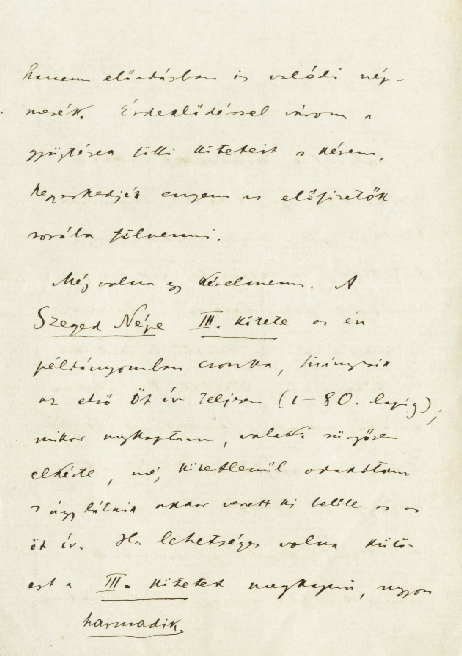 hanem előadásban is valódi nép-
mesék. Érdeklődéssel várom a
gyűjtésed többi köteteit s kérem,
kegyeskedjék engem az előfizetők
sorába fölvenni.
Még volna egy kérelmem. A
Szeged Népe III. kötete az én
példányomban csonka, hiányzik
az első öt ív teljesen (1–80. lapig);
mikor megkaptam, valaki sürgősen
elkérte, még kötetlenül odaadtam
s úgy látszik akkor veszett ki belőle az az
öt ív. Ha lehetséges volna külön
ezt a III. kötetet megkapni, nagyon
harmadik